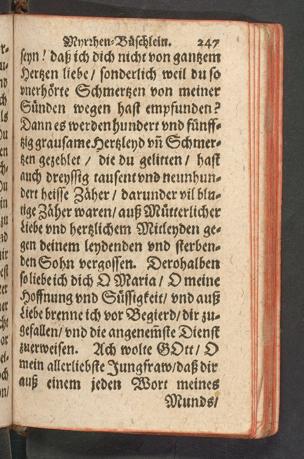 Myrrhen-Büschlein. 247
seyn! daß ich dich nicht von gantzem
Hertzen liebe/ sonderlich weil du so
unerhörte Schmertzen von meiner
Sünden wegen hast empfunden?
Dann es werden hundert vnd fünff-
tzig grausame Hertzleyd vñ Schmer-
tzen gezehlet / die du gelitten / hast
auch dreyssig tausent vnd neunhun-
dert heisse Zäher / darunder vil blu-
tige Zäher waren/ auß Mütterlicher
Liebe vnd hertzlichem Mitleyden ge-
gen deinem leydenden vnd sterben-
den Sohn vergossen. Derohalben
so liebe ich dich O Maria / O meine
Hoffnung vnd Süssigkeit/ vnd auß
Liebe brenne ich vor Begierd/ dir zu-
gefallen/ vnd die angenemste Dienst
zuerweisen. Ach wolte GOtt/ O
mein allerliebste Jungfraw/ daß dir
auß einem jeden Wort meines
Munds/